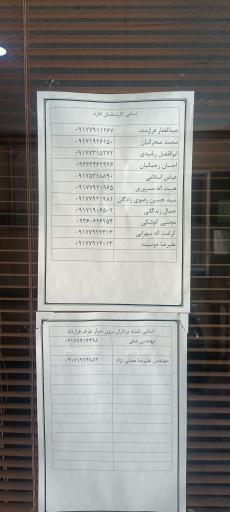 اسامی کارشناسان اداره
عبدالغفار فرازمند ۰۹۱۷۷۹۱۱۲۶۷
محمد صحرائیان ۰۹۱۷۱۹۲۶۱۵۰
ابوالفضل رشیدی ۰۹۱۷۷۳۱۵۳۷۲
احسان رحمانیان ۰۹۳۶۲۴۶۲۹۲۶
عباس اسلامی ۰۹۱۷۵۳۱۸۸۹۰
هیبت اله سروری ۰۹۱۷۷۹۲۰۹۶۵
سید حسین رضوی زادگان ۰۹۱۷۷۹۲۱۹۸۲
جمال زندگانی ۰۹۱۷۱۹۰۶۵۰۲
مجتبی کوشکی ۰۹۳۶۰۶۲۶۲۵۴
کرامت اله سهرابی ۰۹۱۷۷۹۲۲۳۱۳
علیرضا دوسیده ۰۹۱۷۷۹۱۲۰۱۳
اسامی نقشه برداران برون سپار طرف قرارداد
مهندس شفق ۰۹۱۷۷۹۱۴۴۹۸
مهندس علیرضا مصلی نژاد ۰۹۱۷۱۹۲۴۸۵۳